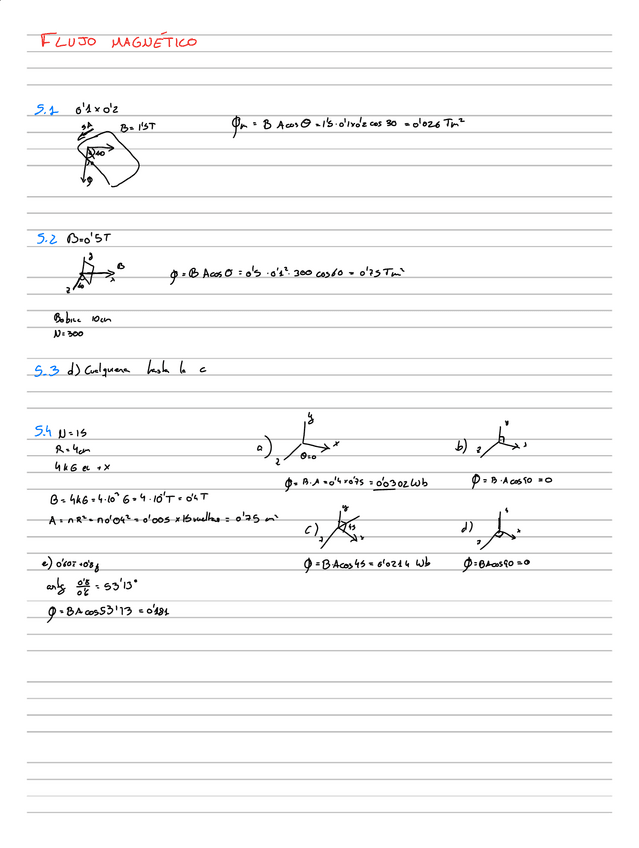 FLUJO MAGNÉTICO
5.1 0'1 x 0'2
B = 1'5T
ϕm = B A cos θ = 1'5 · 0'1 x 0'2 cos 30 = 0'026 Tm²
5.2 B = 0'5T
y
B
x
z
ϕ = B A cos θ = 0'5 · 0'1² · 300 cos 60 = 0'75 Tm²
Bobina 10cm
N = 300
5.3 d) Cualquiera hasta la c
5.4 N = 15
R = 4cm
4 kG en +x
B = 4kG = 4·10³ G = 4·10⁻¹ T = 0'4 T
A = π R² = π 0'04² = 0'005 x 15 vueltas = 0'75 m²
a)
y
x
z
θ=0
ϕ = B·A = 0'4 x 0'75 = 0'0302 Wb
b)
ϕ = B·A cos 90 = 0
c)
45
ϕ = B·A cos 45 = 0'0214 Wb
d)
ϕ = B A cos 90 = 0
e) 0'60i + 0'8j
artg 0'8/0'6 = 53'13°
ϕ = B A cos 53'13 = 0'181